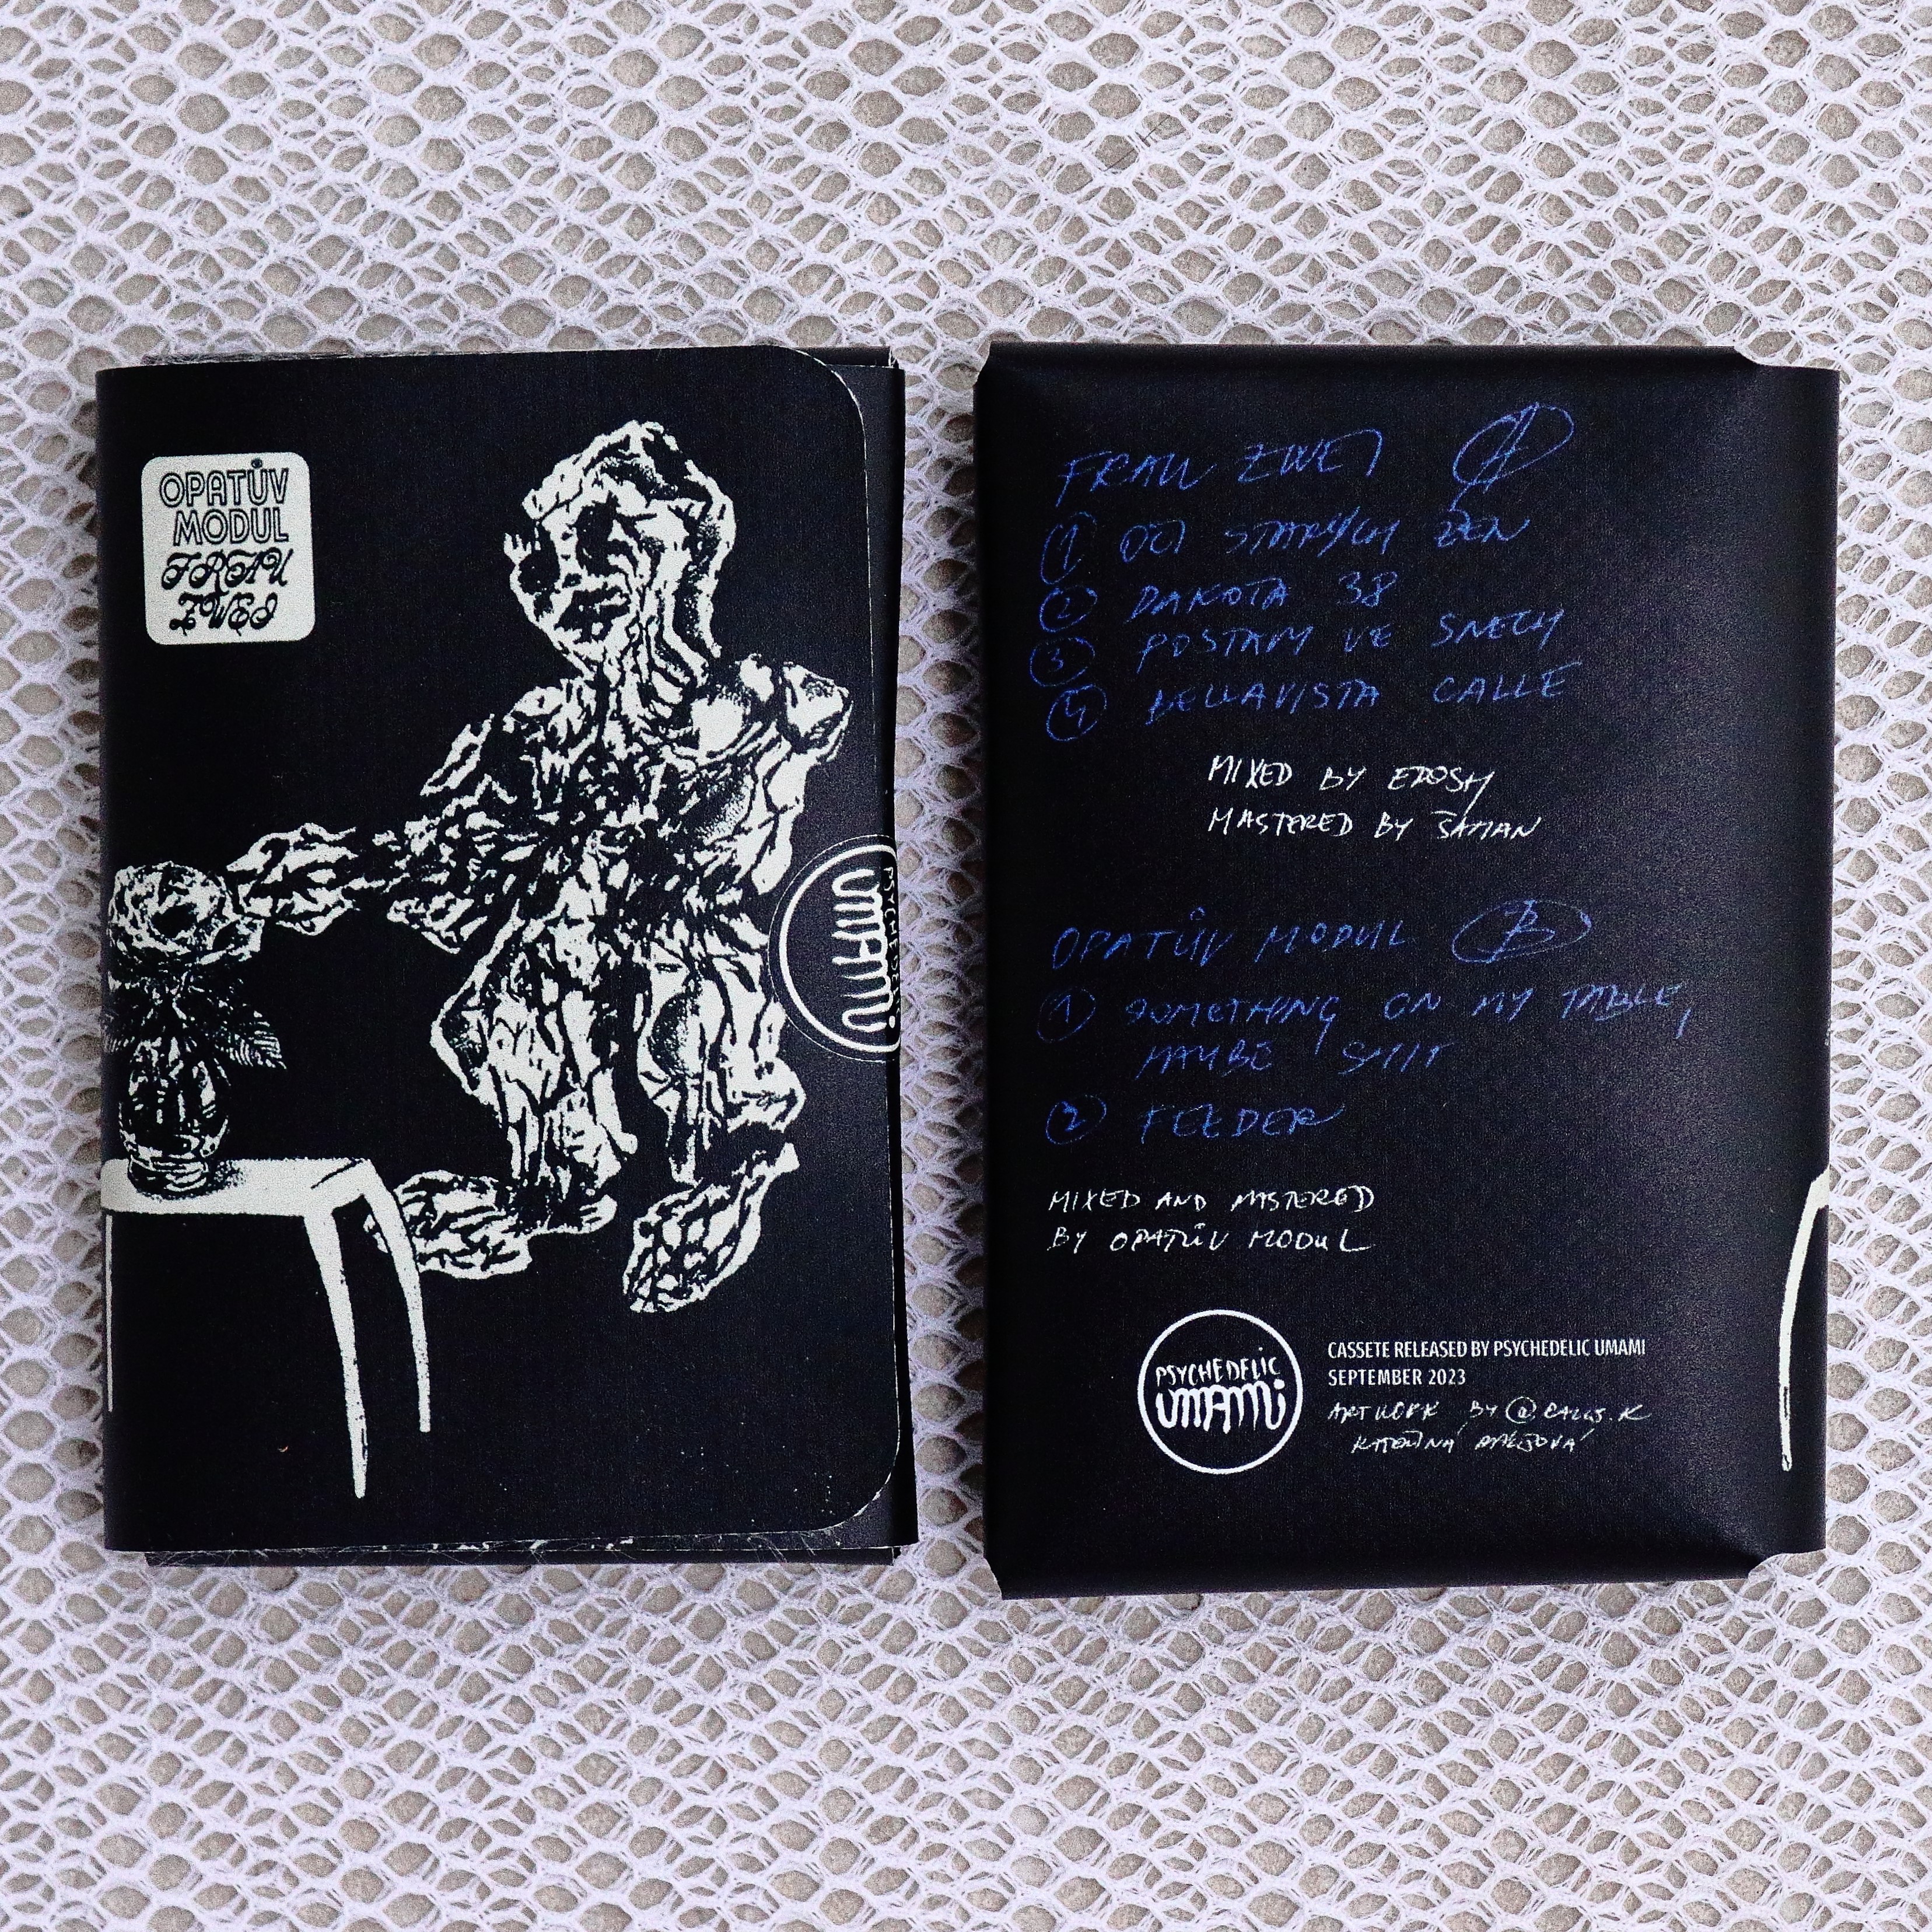 OPATŮV
MODUL
FRAU
ZWEI
PSYCHEDE
UMAMI
FRAU ZWEI A
1 OČI STARÝCH ŽEN
2 DAKOTA 38
3 POSTAVY VE SNECH
4 BELLAVISTA CALLE
MIXED BY EPOSH
MASTERED BY ŠAMAN
OPATŮV MODUL B
1 SOMETHING ON MY TABLE,
MAYBE SHIT
2 FEEDER
MIXED AND MASTERED
BY OPATŮV MODUL
PSYCHEDELIC
UMAMI
CASSETE RELEASED BY PSYCHEDELIC UMAMI
SEPTEMBER 2023
ARTWORK BY
KATEŘINA